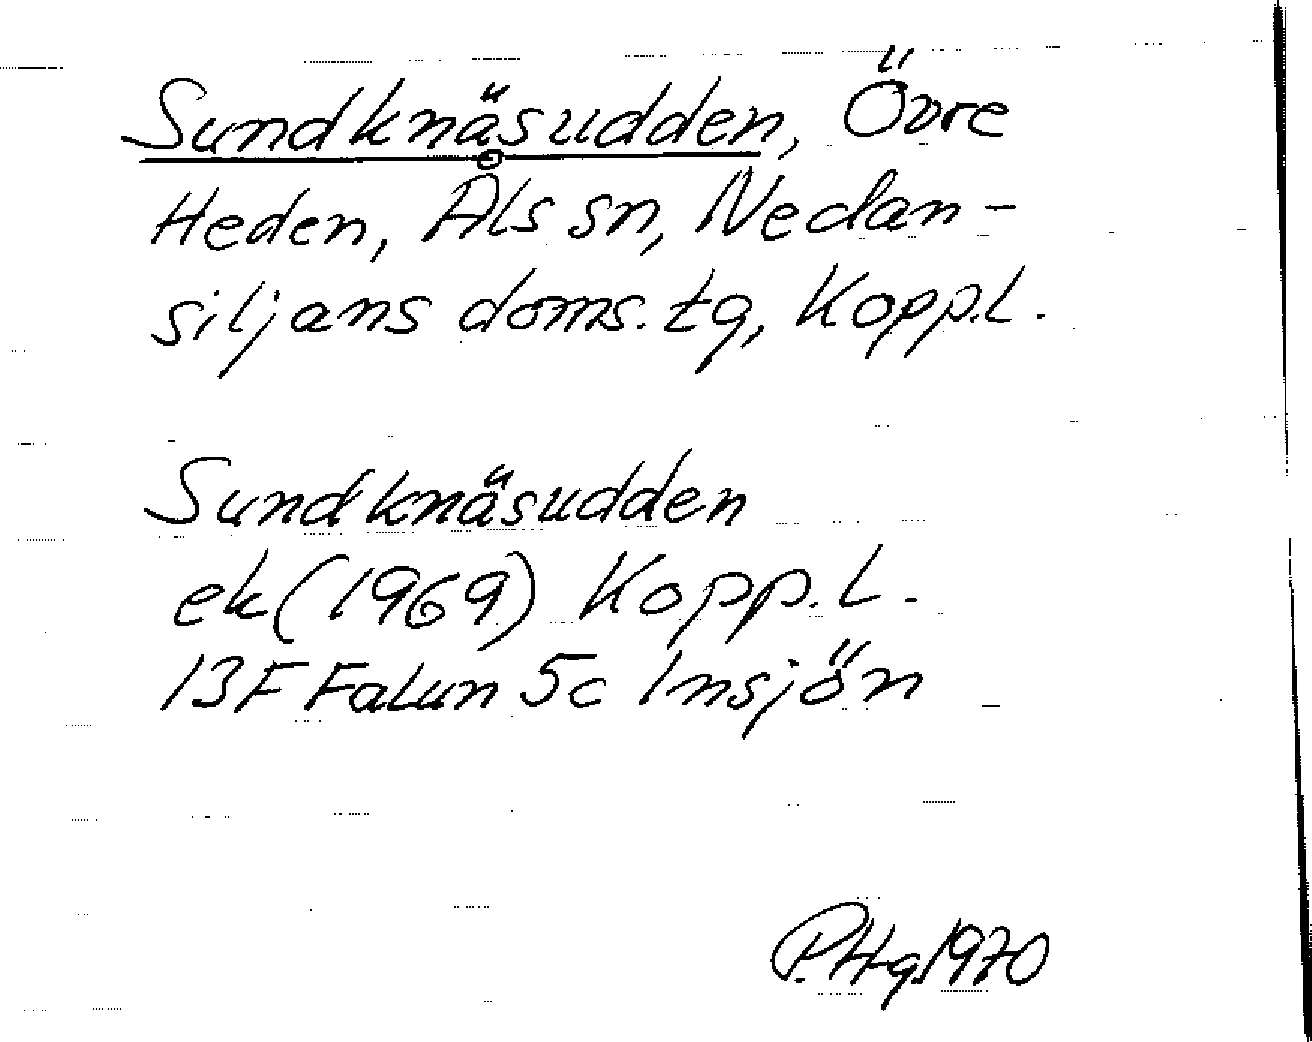 Sundknäsudden, Övre
Heden, Åls sn, Nedan-
siljans doms. tg, Kopp.l.
Sundknäsudden
ek (1969) Kopp.l.
13F Falun 5c Insjön
P.Hg. 1970